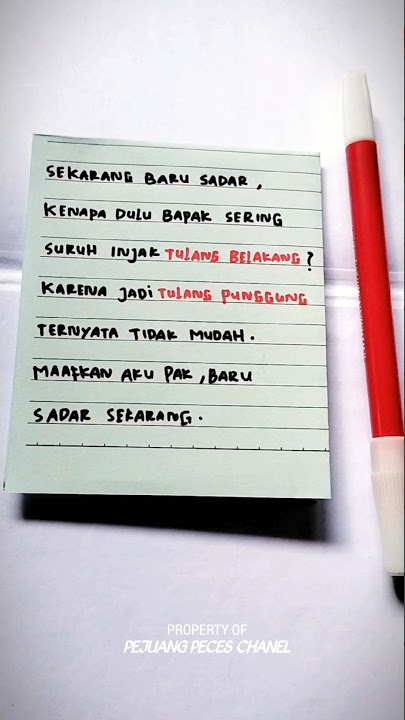 SEKARANG BARU SADAR,
KENAPA DULU BAPAK SERING
SURUH INJAK TULANG BELAKANG?
KARENA JADI TULANG PUNGGUNG
TERNYATA TIDAK MUDAH.
MAAFKAN AKU PAK, BARU
SADAR SEKARANG.
PROPERTY OF
PEJUANG PECES CHANEL